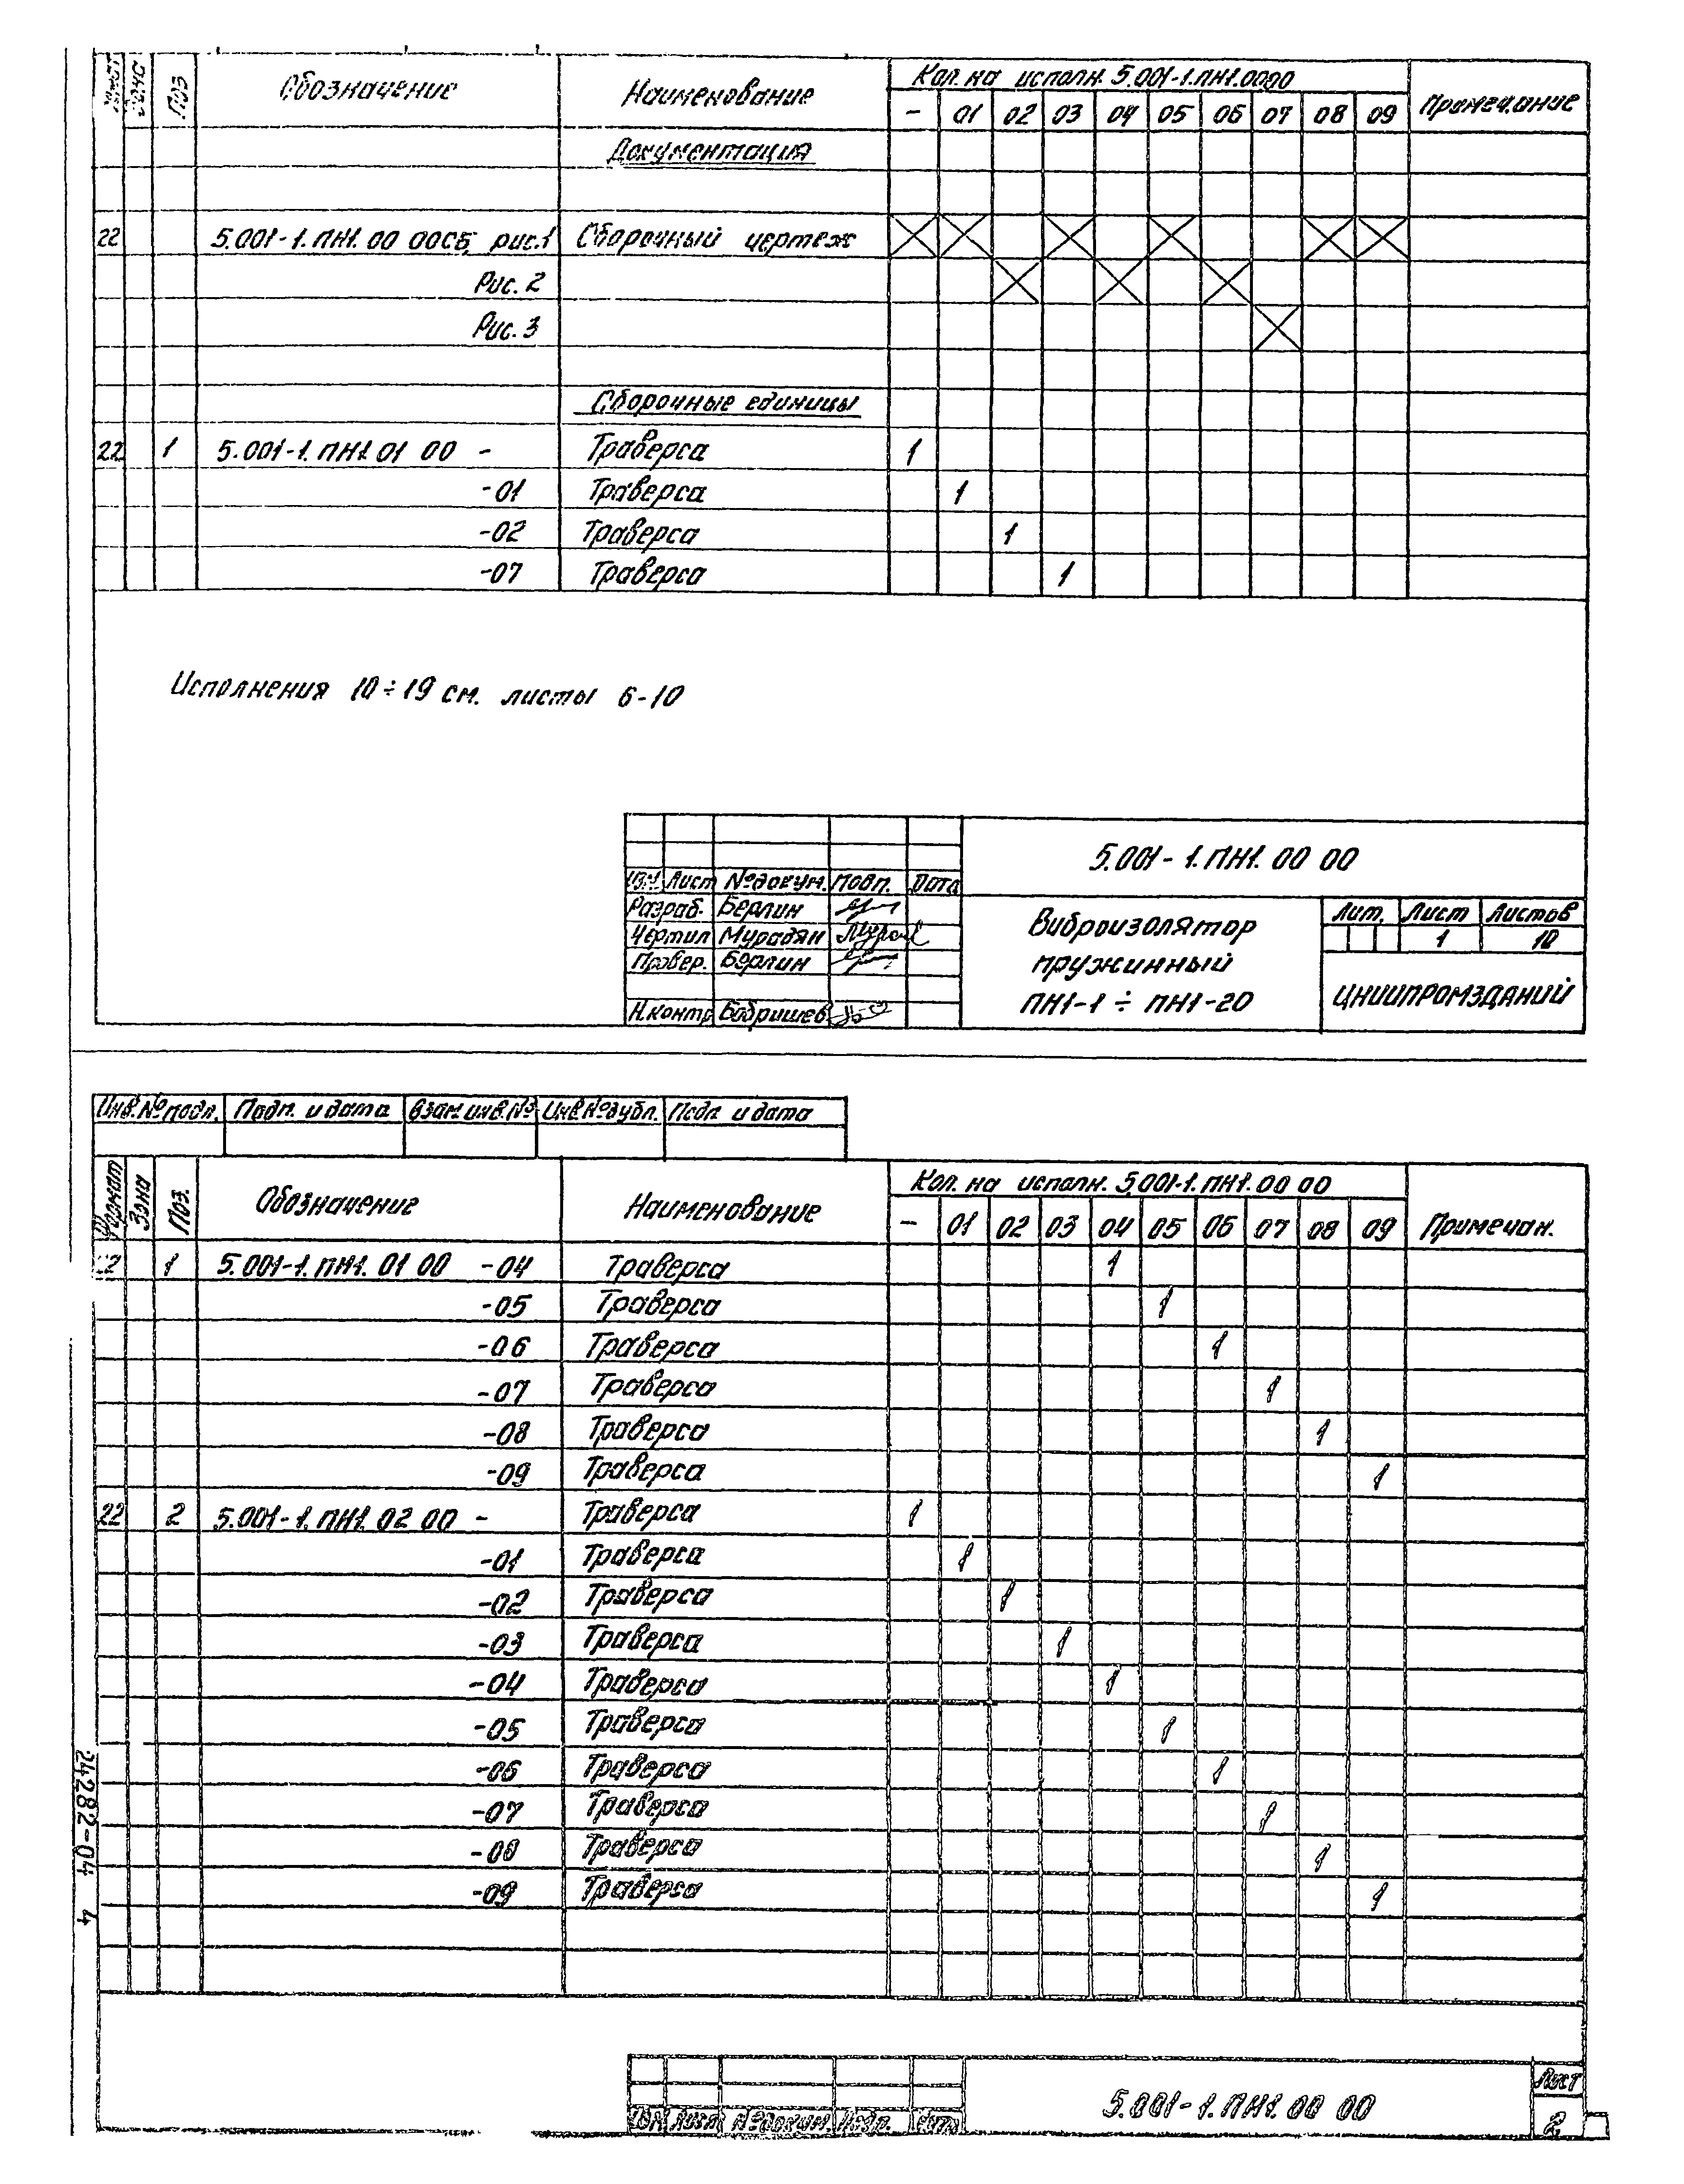 Поз Обозначение Наименование Кол. на исполн. 5.001-1.ПН1.0000 Примечание
- 01 02 03 04 05 06 07 08 09
Документация
22 5.001-1.ПН1.00 00СБ, рис.1 Сборочный чертеж
Рис. 2
Рис. 3
Сборочные единицы
22 1 5.001-1.ПН1 01 00 - Траверса 1
-01 Траверса 1
-02 Траверса 1
-07 Траверса 1
Исполнения 10÷19 см. листы 6-10
5.001-1.ПН1.00 00
Изм Лист №докум. Подп. Дата
Разраб. Берлин
Чертил Мурадян
Провер. Берлин
Н.контр Бобришев
Виброизолятор
пружинный
ПН1-1 ÷ ПН1-20
Лит. Лист Листов
1 10
ЦНИИПРОМЗДАНИЙ
Инв.№подл. Подп. и дата Взам инв.№ Инв №дубл. Подп. и дата
Формат Зона Поз. Обозначение Наименование Кол. на исполн. 5.001-1.ПН1.00 00 Примечан.
- 01 02 03 04 05 06 07 08 09
22 1 5.001-1.ПН1.01 00 -04 Траверса 1
-05 Траверса 1
-06 Траверса 1
-07 Траверса 1
-08 Траверса 1
-09 Траверса 1
22 2 5.001-1.ПН1.02 00 - Траверса 1
-01 Траверса 1
-02 Траверса 1
-03 Траверса 1
-04 Траверса 1
-05 Траверса 1
-06 Траверса 1
-07 Траверса 1
-08 Траверса 1
-09 Траверса 1
24282-04 4
Изм Лист №докум. Подп. Дата
5.001-1.ПН1.00 00
Лист
2